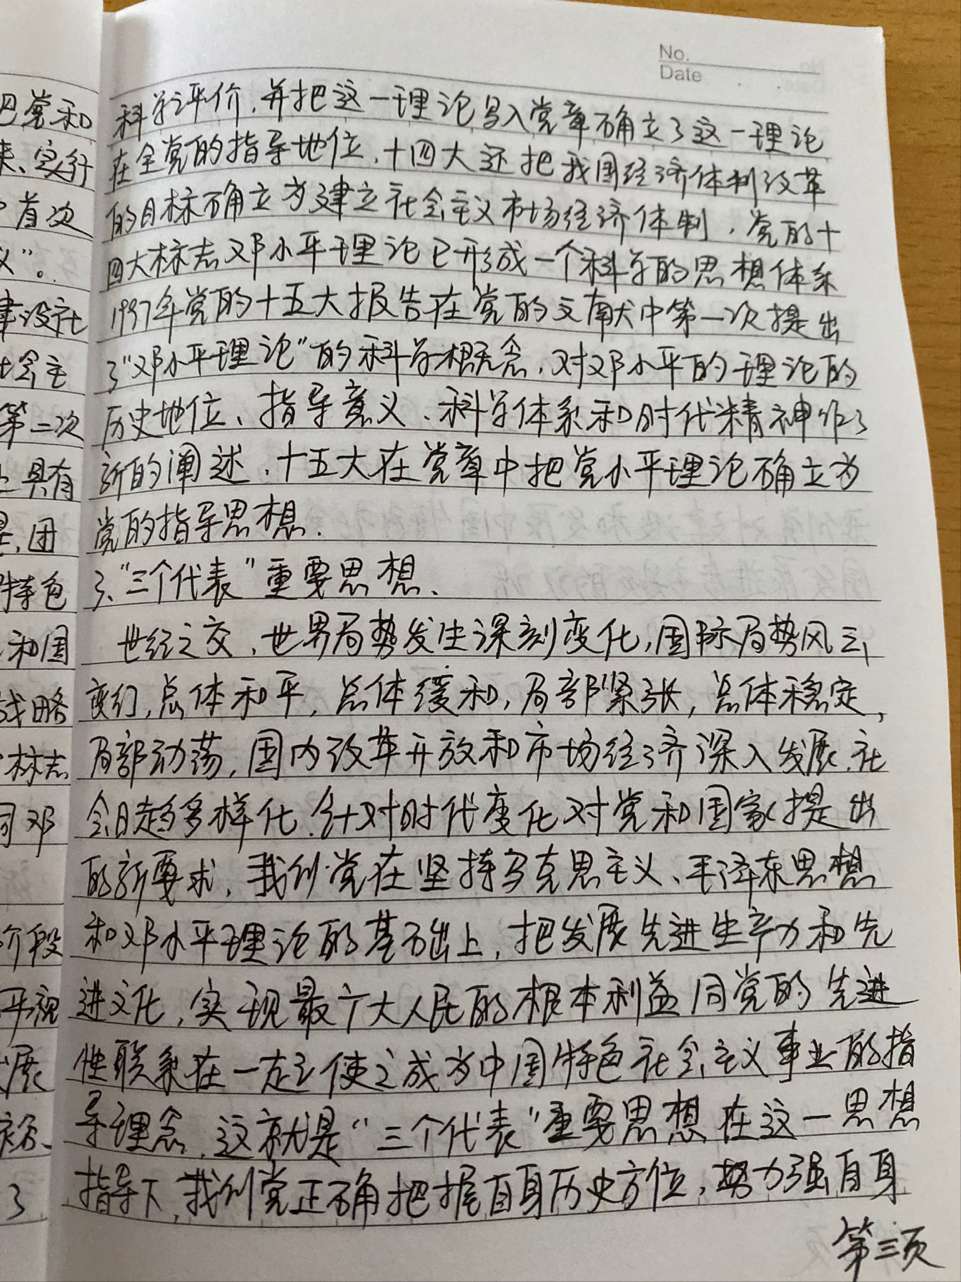 No.
Date
科学评价，并把这一理论写入党章确立了这一理论
在全党的指导地位，十四大还把我国经济体制改革
的目标确立为建立社会主义市场经济体制，党的十
四大标志邓小平理论已形成一个科学的思想体系
1997年党的十五大报告在党的文献中第一次提出
了"邓小平理论"的科学概念，对邓小平的理论的
历史地位、指导意义、科学体系和时代精神作了
新的阐述，十五大在党章中把党小平理论确立为
党的指导思想.
3、"三个代表"重要思想、
世纪之交，世界局势发生深刻变化，国际局势风云
变幻，总体和平，总体缓和，局部紧张，总体稳定，
局部动荡，国内改革开放和市场经济深入发展，社
会日趋多样化，针对时代变化对党和国家提出
的新要求，我们党在坚持马克思主义、毛泽东思想
和邓小平理论的基础上，把发展先进生产力和先
进文化，实现最广大人民的根本利益同党的先进
性联系在一起，使之成为中国特色社会主义事业的指
导理念，这就是"三个代表"重要思想在这一思想
指导下，我们党正确把握自身历史方位，努力强自身
第三页
把党和
来，实行
首次
义"。
事设社
社会主
第二次
具有
团
特色
和国
战略
标志
同邓
阶段
平视
展
了